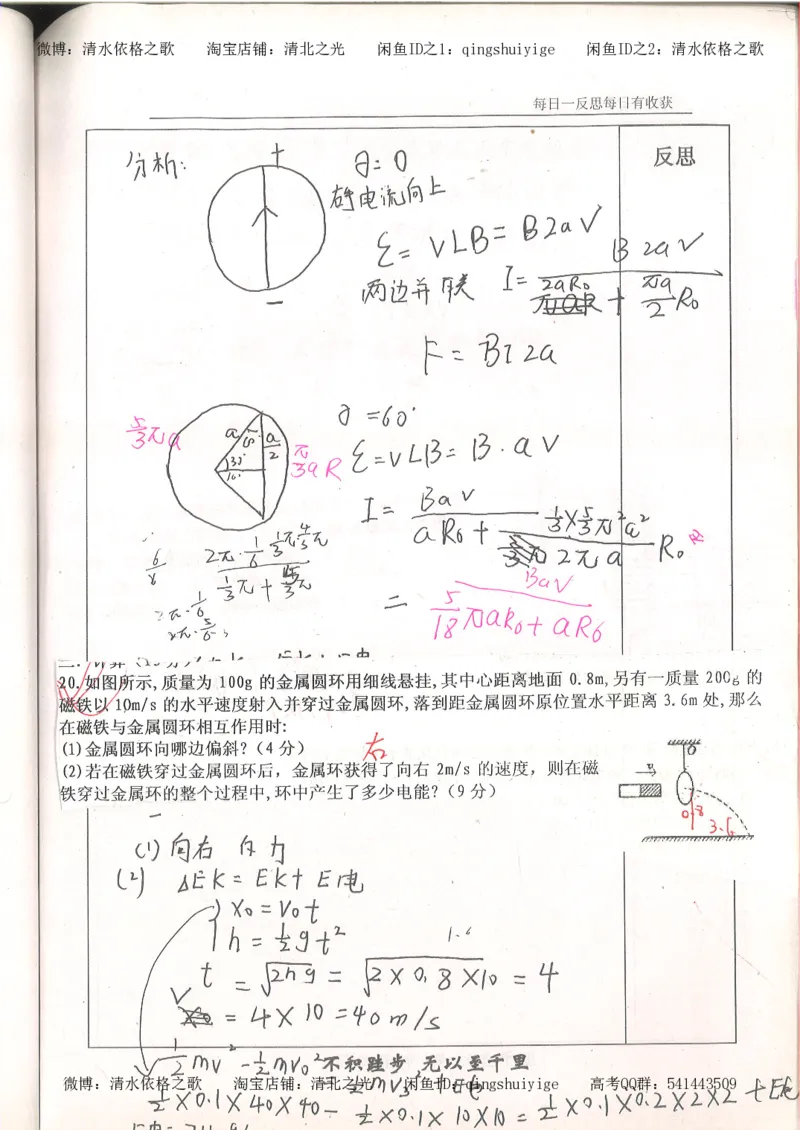 微博：清水依格之歌 淘宝店铺：清北之光 闲鱼ID之1：qingshuiyige 闲鱼ID之2：清水依格之歌
每日一反思每日有收获
反思
分析:
+
∂=0
电流向上
ε= VLB= B2aV
−
两边并联 I= B2aV / 2aR₀ + πa/2 R₀
F = BI 2a
∂=60°
5/3πa
a
a/2
π/3 a R
ε=VLB= B·aV
I= BaV / aR₀ + 1/3×5/3π²a² / 2πa R₀
= BaV / 5/18 πaR₀ + aR₀
20.如图所示,质量为 100g 的金属圆环用细线悬挂,其中心距离地面 0.8m,另有一质量 200g 的
磁铁以 10m/s 的水平速度射入并穿过金属圆环,落到距金属圆环原位置水平距离 3.6m 处,那么
在磁铁与金属圆环相互作用时:
(1)金属圆环向哪边偏斜?（4 分）
右
(2)若在磁铁穿过金属圆环后，金属环获得了向右 2m/s 的速度，则在磁
铁穿过金属环的整个过程中,环中产生了多少电能?（9 分）
0.8
3.6
(1) 向右
(2) ΔEK = EK+ E电
X₀ = V₀t
h = ½gt²
t = √2hg = √2×0.8×10 = 4
V = 4×10 =40m/s
½mv² -½mv₀²
不积跬步 无以至千里
微博：清水依格之歌 淘宝店铺：清北之光 闲鱼ID：qingshuiyige 高考QQ群：541443509
½×0.1×40×40− ½×0.1×10×10 = ½×0.1×0.2×2×2 +E电